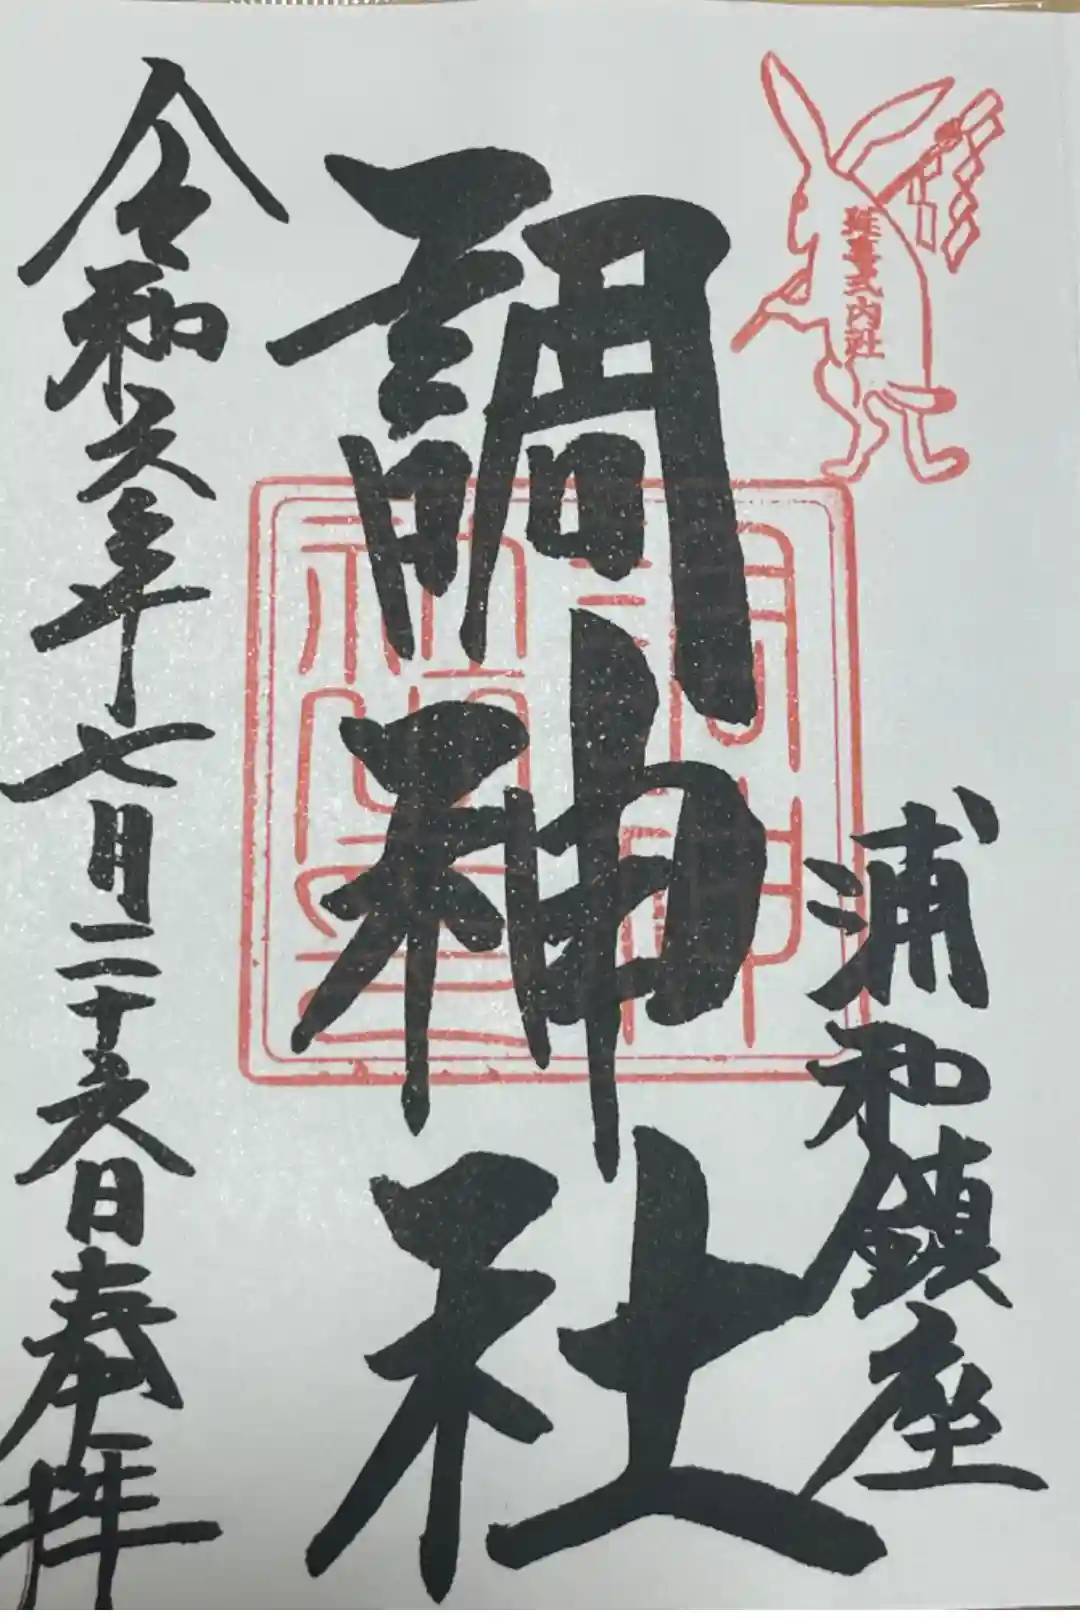 延喜式内社
浦和鎮座
調神社
調神
社之印
令和六年七月二十六日奉拝